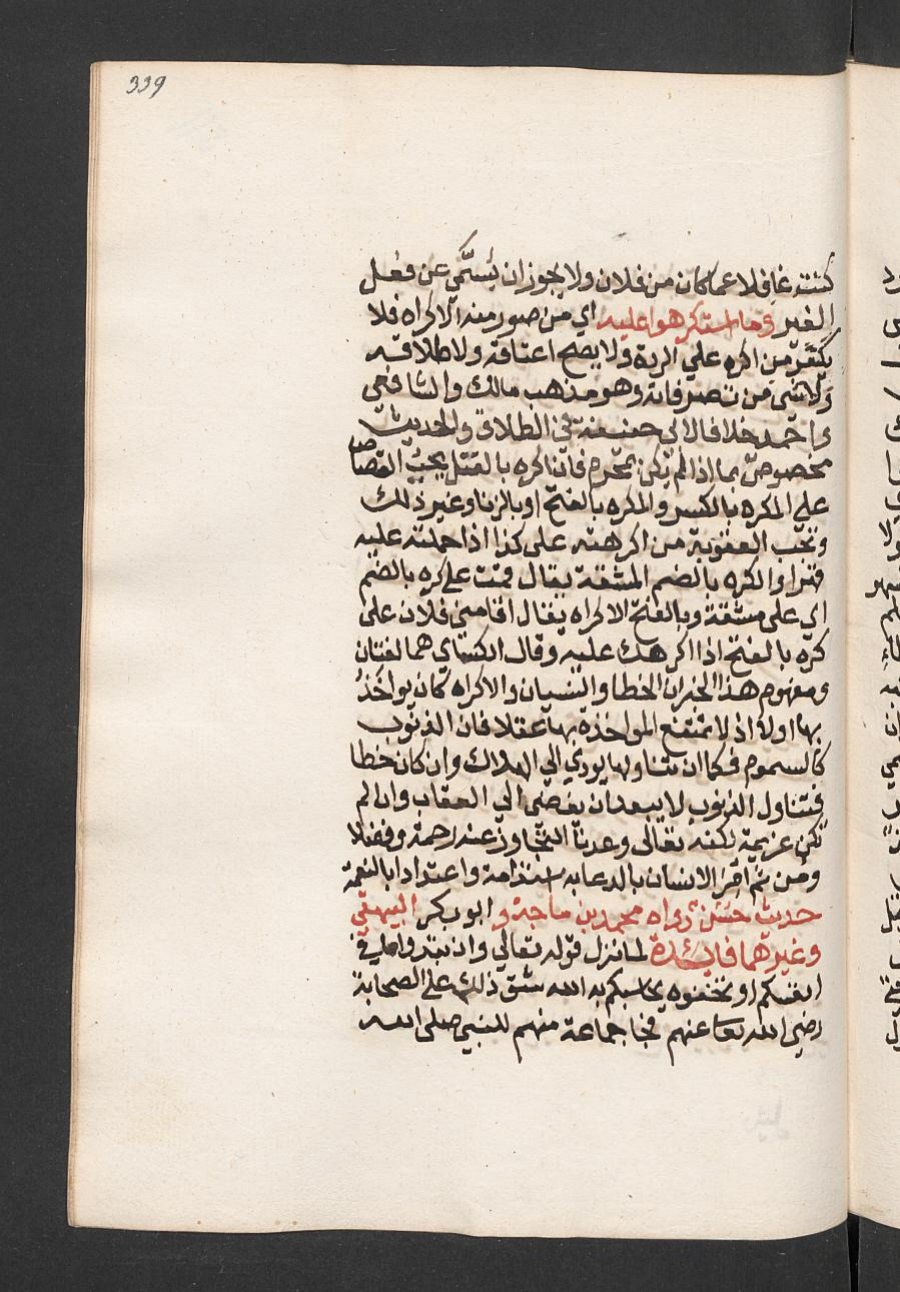 339
كنت غافلا عما كان من فلان ولا يجوز ان يسمي عن فعل
الغير وما استكرهوا عليه اي من صور منه الاكراه فلا
يكفر من اكره علي الردة ولا يصح اعتاقه ولا طلاقه
ولا شي من تصرفاته وهو مذهب مالك والشافعي
واحمد خلافا لابي حنيفة في الطلاق والحديث
مخصوص بما اذا لم يكن بمحرم فان اكره بالقتل يجب القصاص
علي المكره بالكسر والمكره بالفتح او بالزنا وغير ذلك
وتجب العقوبة من اكرهته على كذا اذا حملته عليه
قهرا والكره بالضم المشقة يقال قمت علي كره بالضم
اي على مشقة وبالفتح الاكراه يقال اقامني فلان على
كره بالفتح اذا اكرهك عليه وقال الكساي هما لغتان
ومفهوم هذا الخبر ان الخطا والنسيان والاكراه كان يواخذ
بها اولا اذ لا تمتنع المواخذة بها عقلا فان الذنوب
كالسموم فكما ان تناولها يودي الي الهلاك وان كان خطا
فتناول الذنوب لا يبعد ان يفضي الي العقاب وان لم
تكن عزيمة لكنه تعالى وعدنا التجاوز عنه رحمة وفضلا
ومن ثم امر الانسان بالدعا به استدامة واعتدادا بالنعمة
حديث حسن رواه محمد بن ماجة و ابو بكر البيهقي
وغيرهما فايدة لما نزل قوله تعالي وان تبدوا ما في
انفسكم او تخفوه يحاسبكم به الله شق ذلك علي الصحابة
رضي الله تعا عنهم فجا جماعة منهم للنبي صلى الله